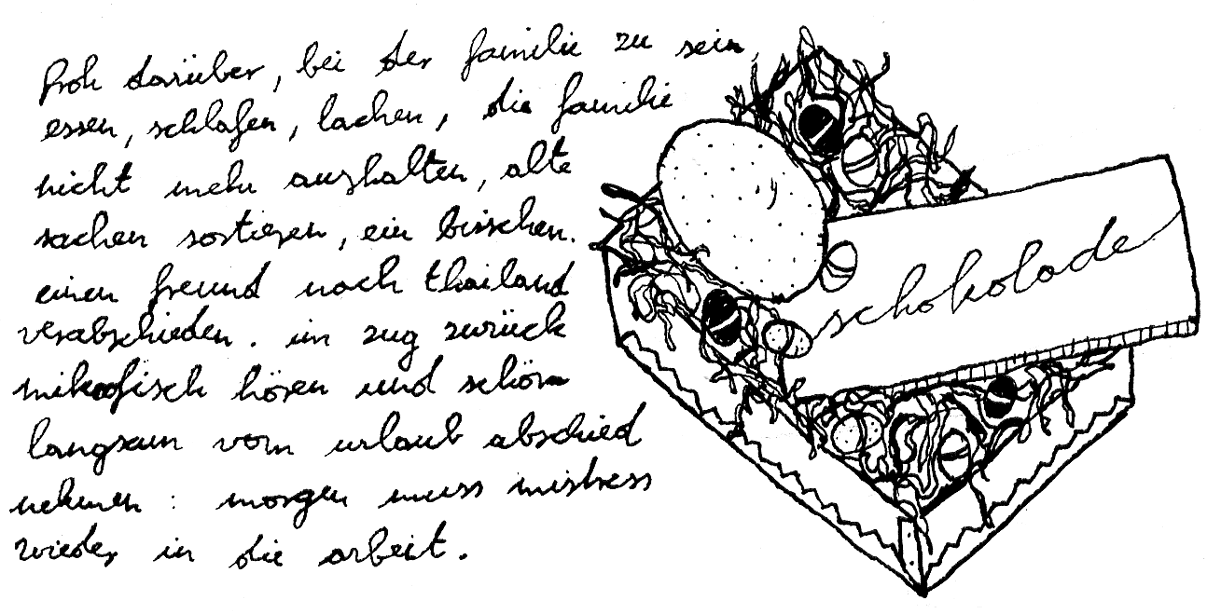 froh darüber, bei der familie zu sein,
essen, schlafen, lachen, die familie
nicht mehr aushalten, alte
sachen sortieren, ein bisschen.
einen freund nach thailand
verabschieden. im zug zurück
mikrofisch hören und schön
langsam vom urlaub abschied
nehmen: morgen muss mistress
wieder in die arbeit.
schokolade